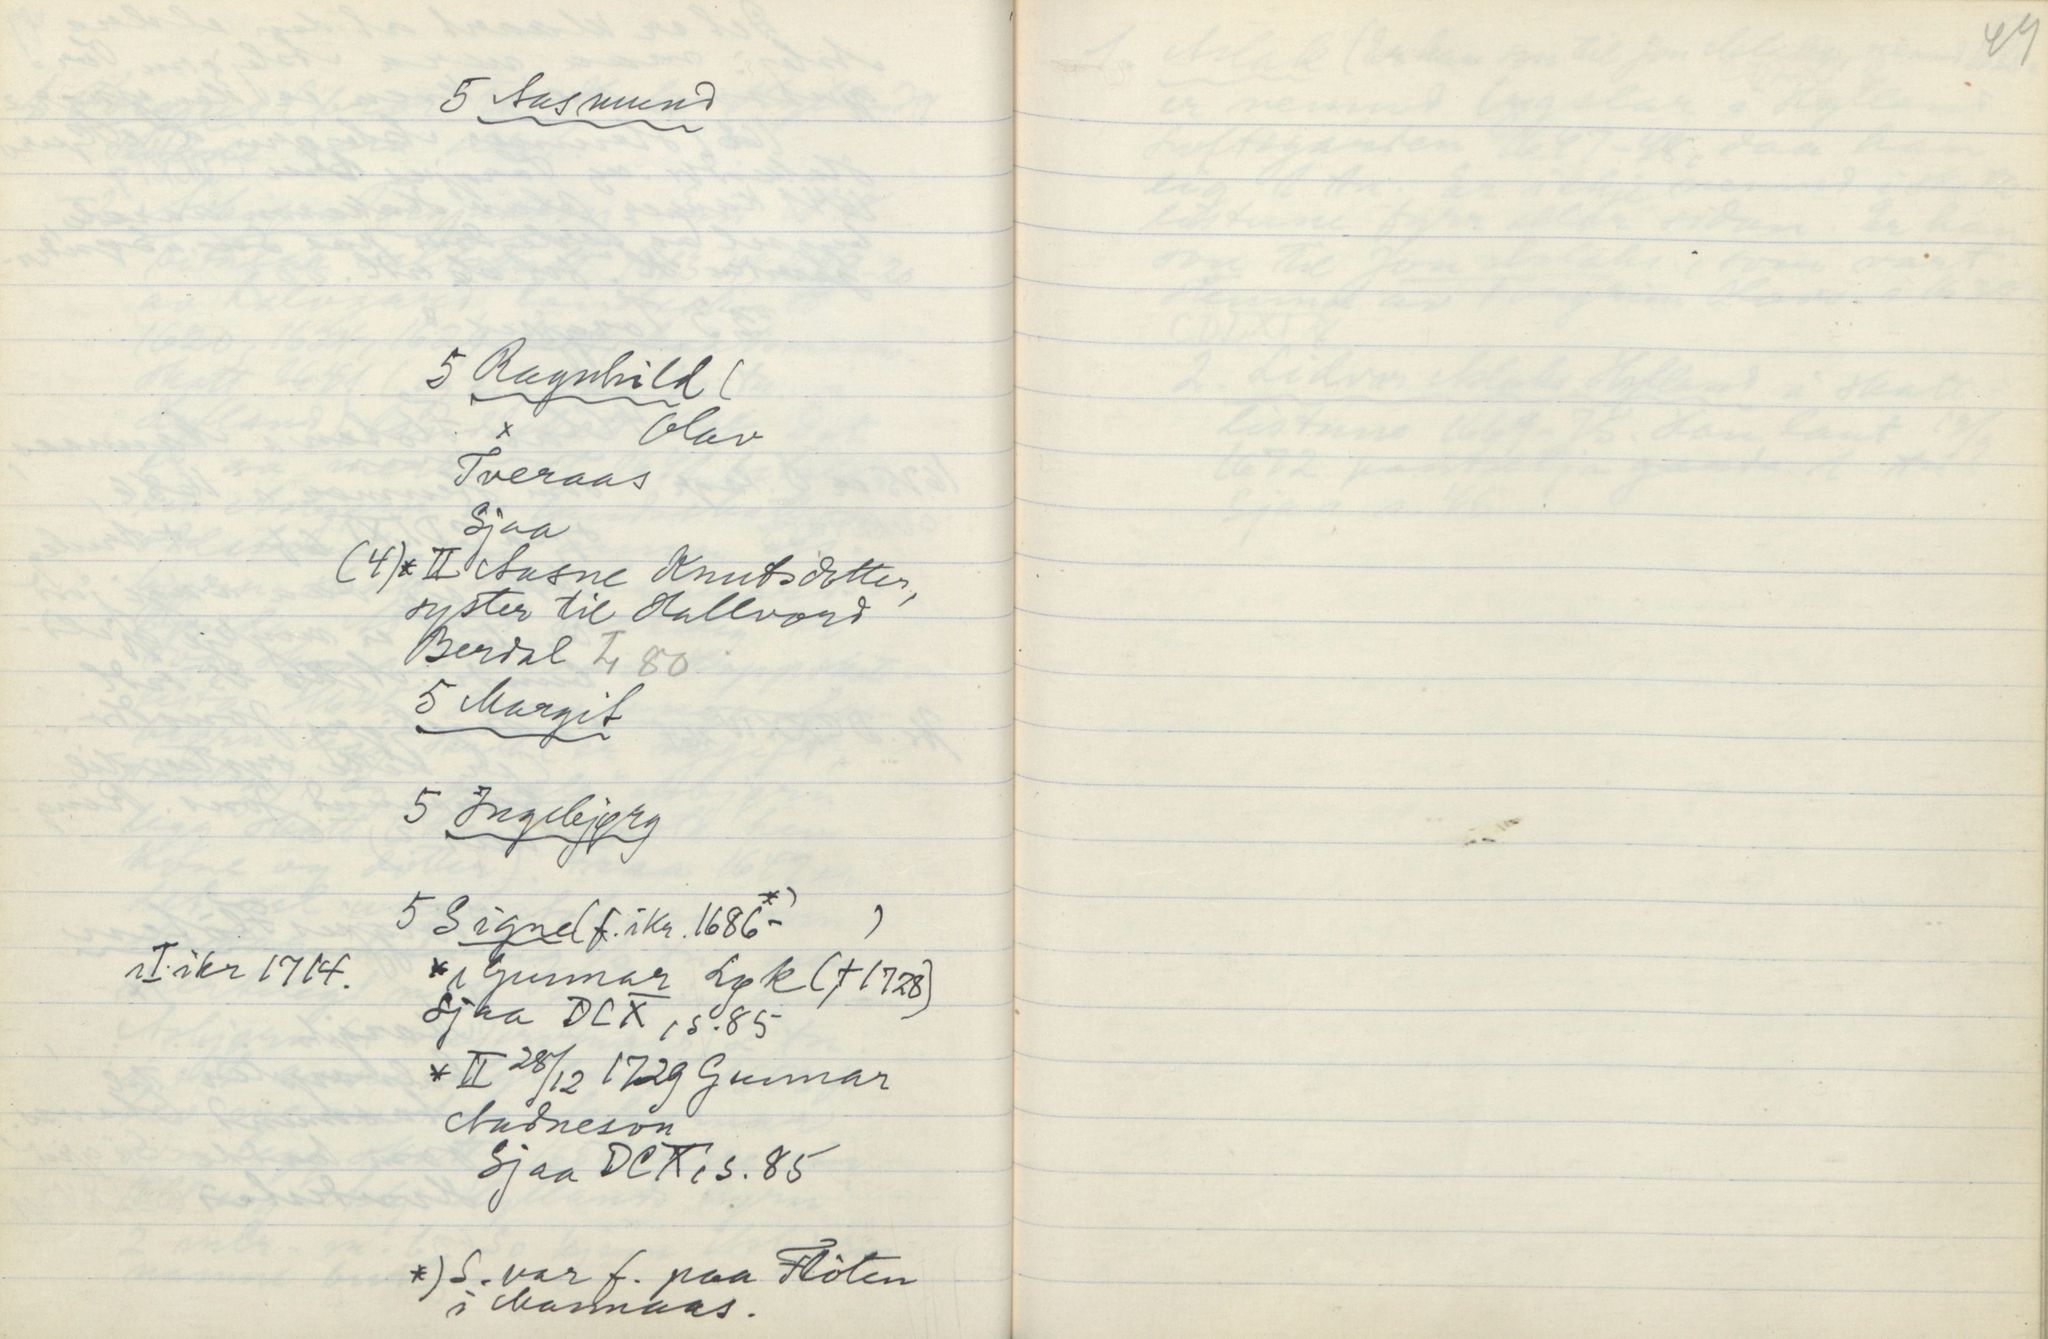 49
5 Aasmund
5 Ragnhild (
x Olav
Tveraas
Sjaa
(4) * II Aasne Knutsdotter,
syster til Hallvord
Berdal I, 80
5 Margit
5 Ingebjørg
5 Signe (f. ikr. 1686*) - )
I. ikr 1714. * Gunnar Løk († 1728)
Sjaa DCX, s. 85
* II 28/12 1729 Gunnar
Aadneson
Sjaa DCX, s. 85
*) S. var f. paa Flöten
i Mannaas.